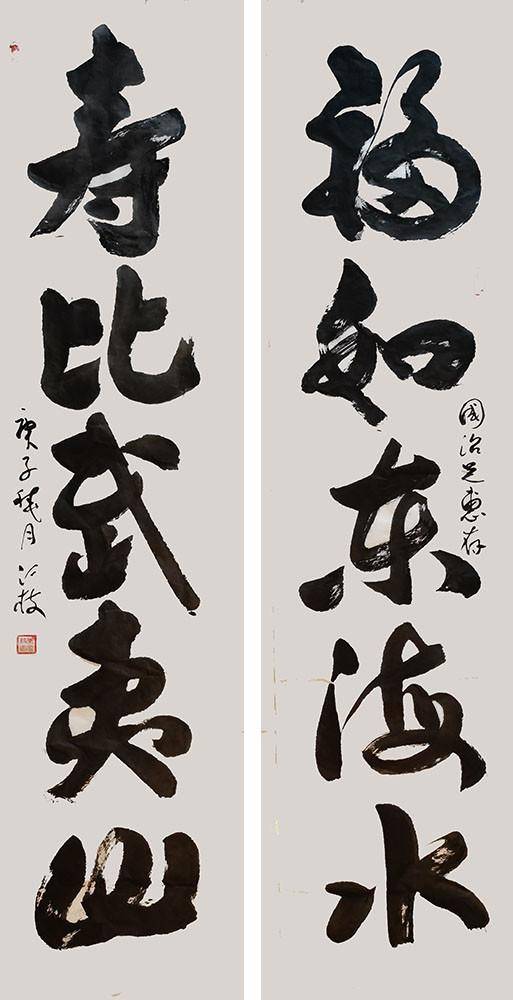 福如東海水
國治兄惠存
寿比武夷山
庚子秋月 江枝